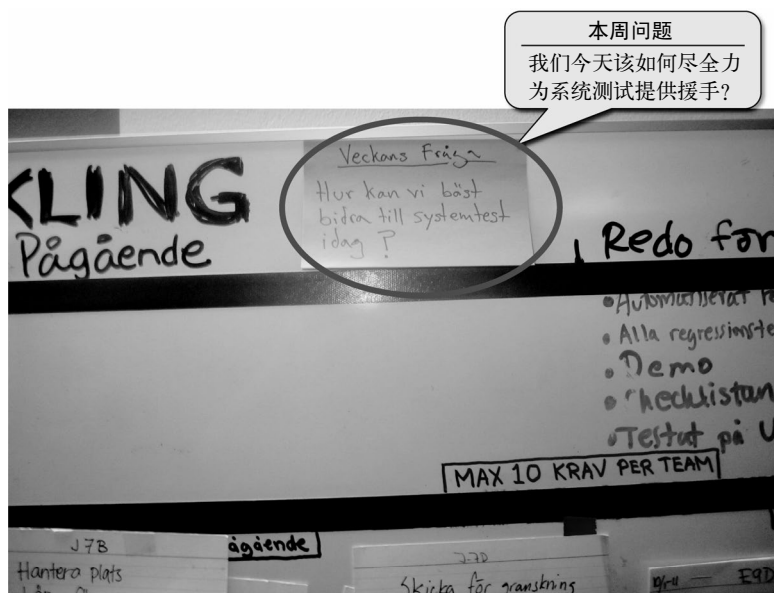 本周问题
我们今天该如何尽全力
为系统测试提供援手？
Veckans Fråga
Hur kan vi bäst
bidra till systemtest
idag ?
KLING
Pågående
Redo för
• Automatiserat
• Alla regressionste
• Demo
• Checklistan
• Testat på U
MAX 10 KRAV PER TEAM
J7B
Hantera plats
ågående
J-7D
Skicka för granskning
E9D